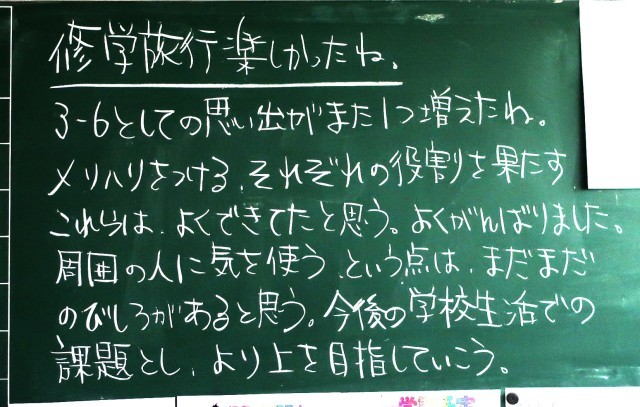 修学旅行楽しかったね。
3-6としての思い出がまた1つ増えたね。
メリハリをつける、それぞれの役割を果たす
これらは、よくできてたと思う。よくがんばりました。
周囲の人に気を使う、という点は、まだまだ
のびしろがあると思う。今後の学校生活での
課題とし、より上を目指していこう。